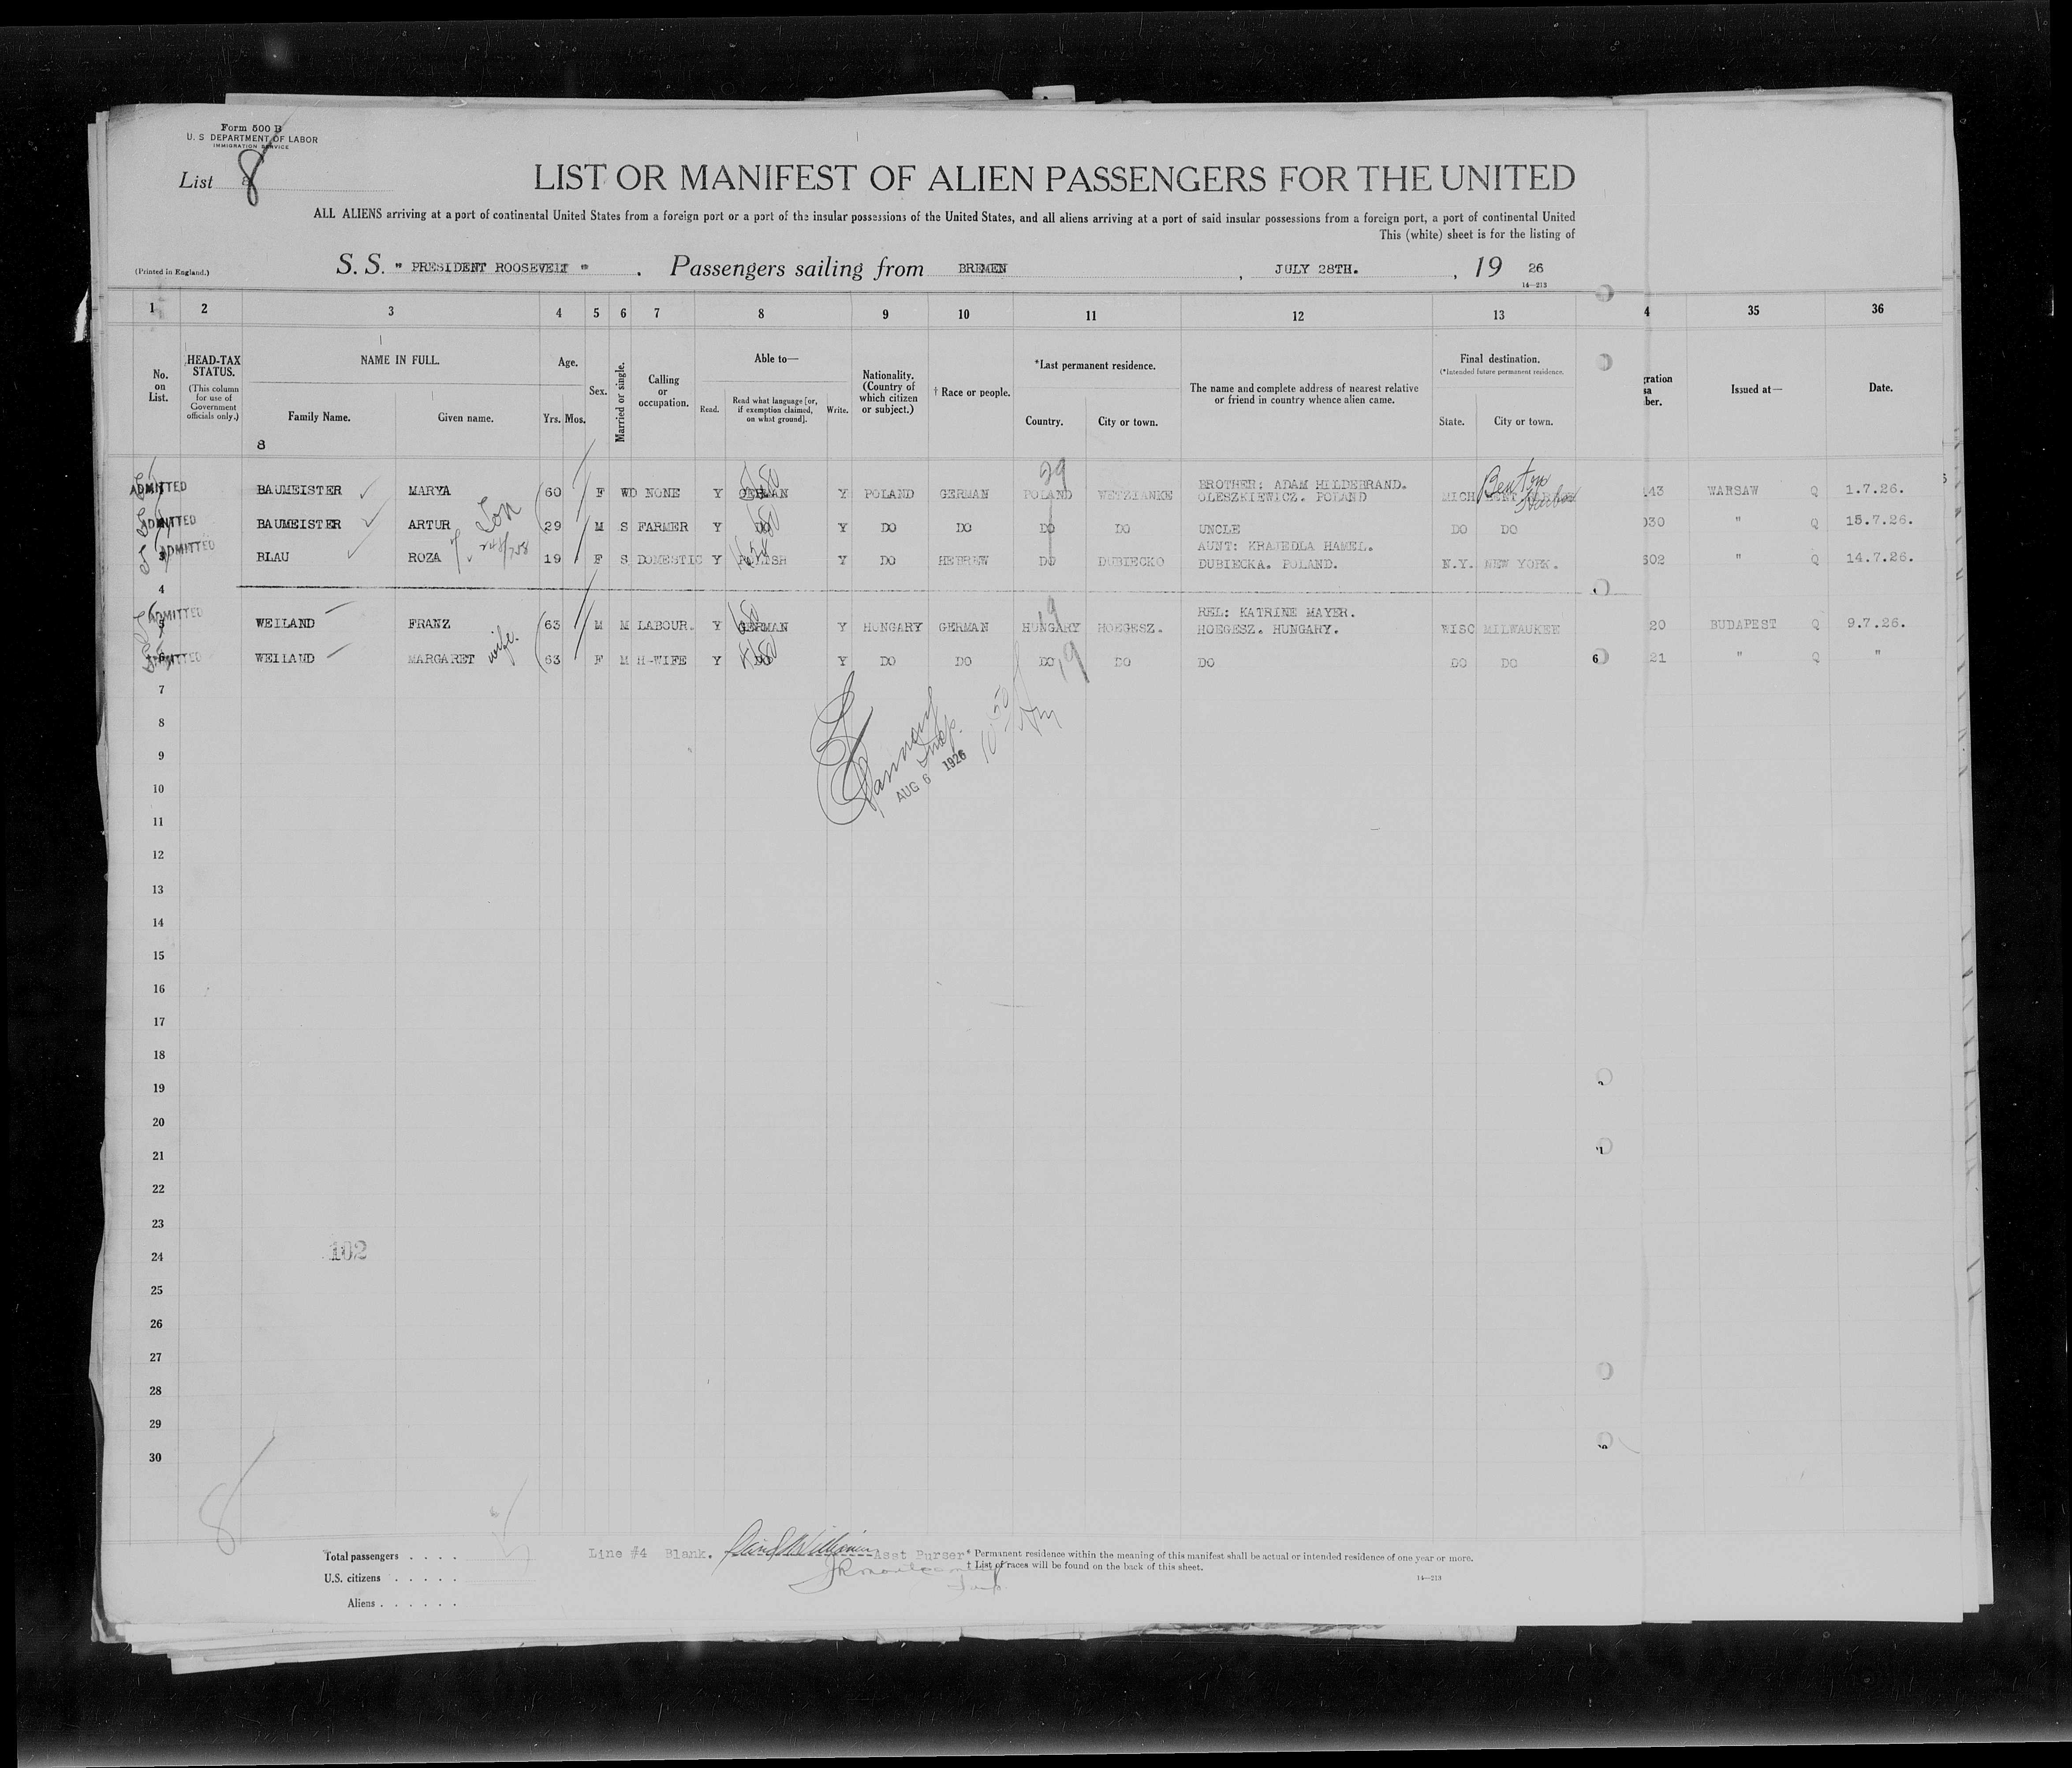 Form 500 B
U. S DEPARTMENT OF LABOR
IMMIGRATION SERVICE
List 8
LIST OR MANIFEST OF ALIEN PASSENGERS FOR THE UNITED
ALL ALIENS arriving at a port of continental United States from a foreign port or a port of the insular possessions of the United States, and all aliens arriving at a port of said insular possessions from a foreign port, a port of continental United
This (white) sheet is for the listing of
(Printed in England.)
S. S. " PRESIDENT ROOSEVELT " . Passengers sailing from BREMEN , JULY 28TH. , 19 26
14—213
1 2 3 4 5 6 7 8 9 10 11 12 13 4 35 36
No. on List.
HEAD-TAX STATUS.
(This column for use of Government officials only.)
NAME IN FULL.
Family Name. Given name.
8
Age.
Yrs. Mos.
Sex.
Married or single.
Calling or occupation.
Able to—
Read. Read what language [or, if exemption claimed, on what ground]. Write.
Nationality. (Country of which citizen or subject.)
† Race or people.
*Last permanent residence.
Country. City or town.
The name and complete address of nearest relative or friend in country whence alien came.
Final destination.
(*Intended future permanent residence.
State. City or town.
gration
sa
ber.
Issued at—
Date.
29
ADMITTED BAUMEISTER MARYA 60 F WD NONE Y GERMAN Y POLAND GERMAN POLAND WETZIANKE BROTHER: ADAM HILDEBRAND. OLESZKIEWICZ. POLAND MICH Benton Harbor 43 WARSAW Q 1.7.26.
ADMITTED BAUMEISTER ARTUR Son 29 M S FARMER Y DO Y DO DO DO DO UNCLE DO DO 030 " Q 15.7.26.
3 ADMITTED BLAU ROZA 19 F S DOMESTIC Y POLISH Y DO HEBREW DO DUBIECKO AUNT: KRAJEDLA HAMEL. DUBIECKA. POLAND. N.Y. NEW YORK. 602 " Q 14.7.26.
4
5 ADMITTED WEILAND FRANZ 63 M M LABOUR. Y GERMAN Y HUNGARY GERMAN HUNGARY HOEGESZ. REL: KATRINE MAYER. HOEGESZ. HUNGARY. WISC MILWAUKEE 20 BUDAPEST Q 9.7.26.
6 ADMITTED WEILAND MARGARET wife. 63 F M H-WIFE Y DO Y DO DO DO DO DO DO DO 6 21 " Q "
7
8
9
Insp.
AUG 6 1926
10
11
12
13
14
15
16
17
18
19
20
21
22
23
24
102
25
26
27
28
29
30
8
Total passengers . . . .
U.S. citizens . . . . .
Aliens . . . . . .
Line #4 Blank. Asst Purser
* Permanent residence within the meaning of this manifest shall be actual or intended residence of one year or more.
† List of races will be found on the back of this sheet.
14—213